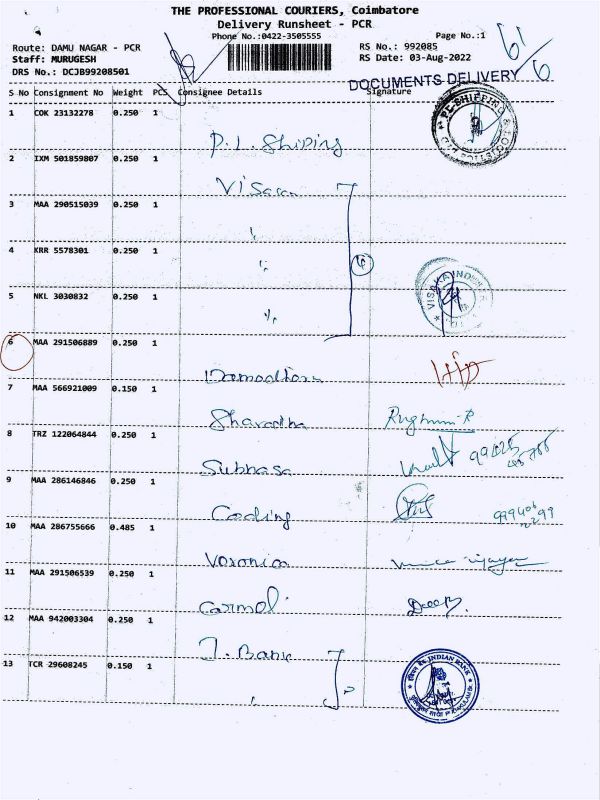 THE PROFESSIONAL COURIERS, Coimbatore
Delivery Runsheet - PCR
Phone No.:0422-3505555 Page No.:1
Route: DAMU NAGAR - PCR RS No.: 992085
Staff: MURUGESH RS Date: 03-Aug-2022
DRS No.: DCJB99208501 DOCUMENTS DELIVERY
S No Consignment No Weight PCS Consignee Details Signature
1 COK 23132278 0.250 1
P.L. Shiping
2 IXM 501859807 0.250 1
Visaca
3 MAA 290515039 0.250 1
4 KRR 5578301 0.250 1
4
5 NKL 3030832 0.250 1
VISAKA INDU
6 MAA 291506889 0.250 1
Damodhara
7 MAA 566921009 0.150 1
Sharadha
8 TRZ 122064844 0.250 1
Subhasa
9 MAA 286146846 0.250 1
Coding
10 MAA 286755666 0.485 1
Voronica
11 MAA 291506539 0.250 1
Carmel
12 MAA 942003304 0.250 1
I. Bank
13 TCR 29608245 0.150 1
INDIAN BANK